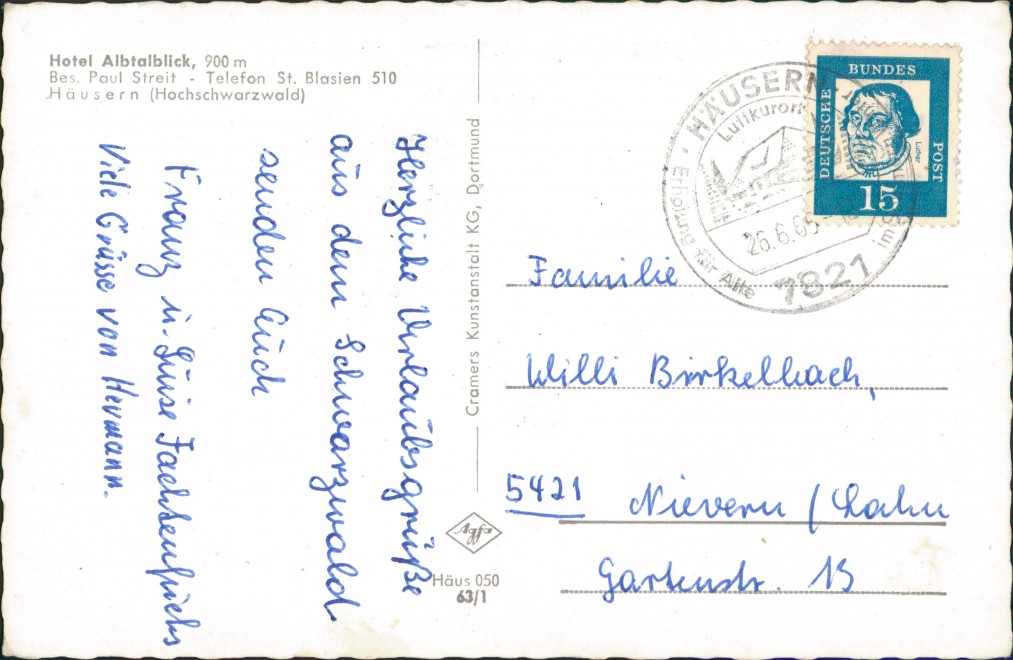 Hotel Albtalblick, 900 m
Bes. Paul Streit - Telefon St. Blasien 510
Häusern (Hochschwarzwald)
Herzliche Urlaubsgrüße
aus dem Schwarzwald
senden Euch
Franz u. Luise
Viele Grüsse von Hermann.
Cramers Kunstanstalt KG, Dortmund
Agfa
Häus 050
63/1
HÄUSERN
Luftkurort
26.6.65
Erholung für Alle
im
7821
DEUTSCHE
BUNDES
POST
Luther
15
Familie
Willi Birkelbach,
5421 Nievern / Lahn
Gartenstr. 13